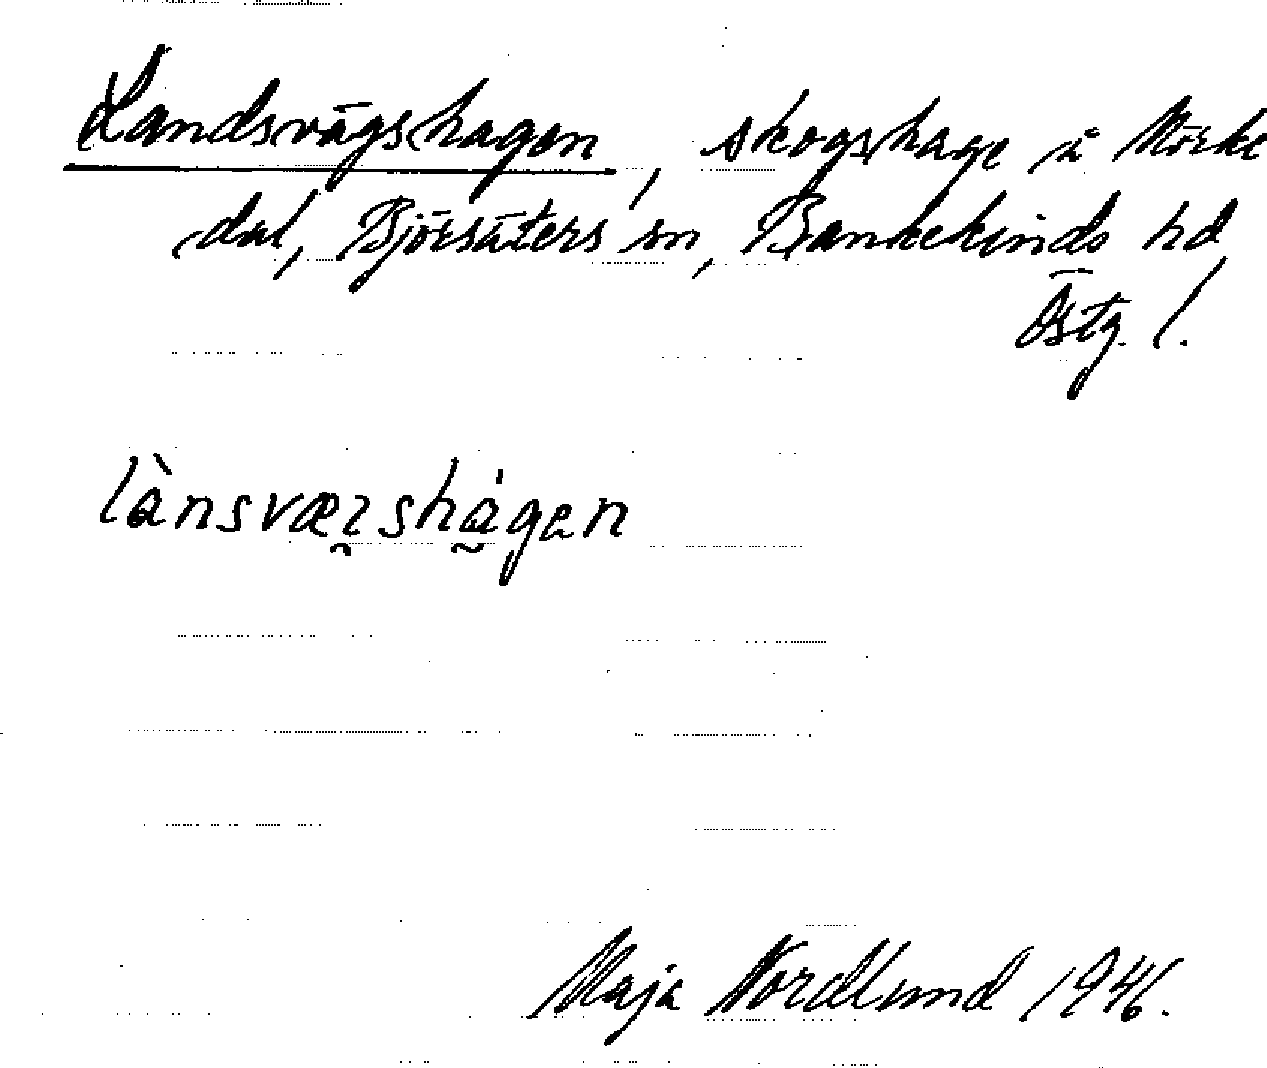 Landsvägshagen, skogshage å Mörke
dal, Björsäters sn, Bankekinds hd
Östg. l.
lànsværshágen
Maja Nordlund 1946.